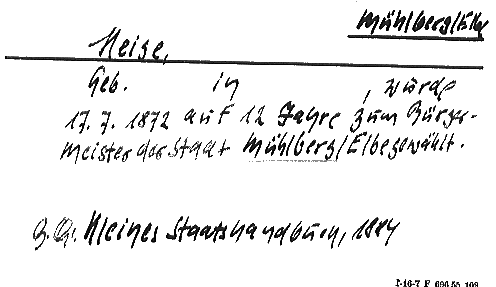 Mühlberg/Elbe
Heise,
Geb. in , wurde
17.7.1872 auf 12 Jahre zum Bürger-
meister der Stadt Mühlberg/Elbe gewählt.
Kleines Staatshandbuch, 1884
I-16-7 F 696 55 109